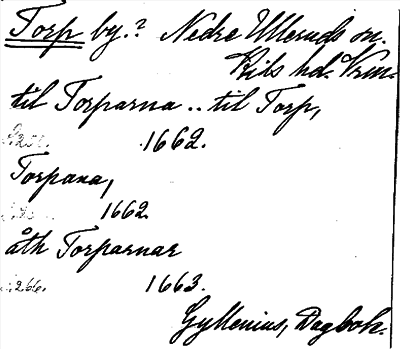 Torp by.? Nedre Ulleruds sn.
Kils hd. Vrm.
til Torparna .. til Torp,
1662.
Torpana,
1662.
åth Torparnar
266. 1663.
Gyllenius, Dagbok.